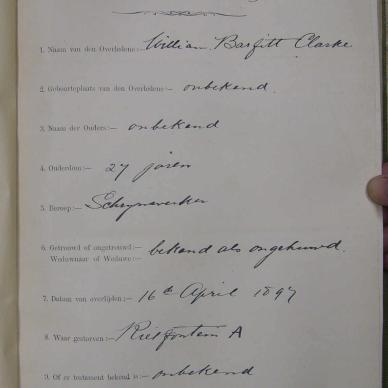 1. Naam van den Overledene:— William Barfitt Clarke
2. Geboorteplaats van den Overledene:— onbekend.
3. Naam der Ouders:— onbekend
4. Ouderdom:— 27 jaren
5. Beroep:— Schrynewerker
6. Getrouwd of ongetrouwd:—
Weduwnaar of Weduwe:— bekend als ongehuwd.
7. Datum van overlijden:— 16de April 1897
8. Waar gestorven:— Rietfontein A
9. Of er testament bekend is:— onbekend